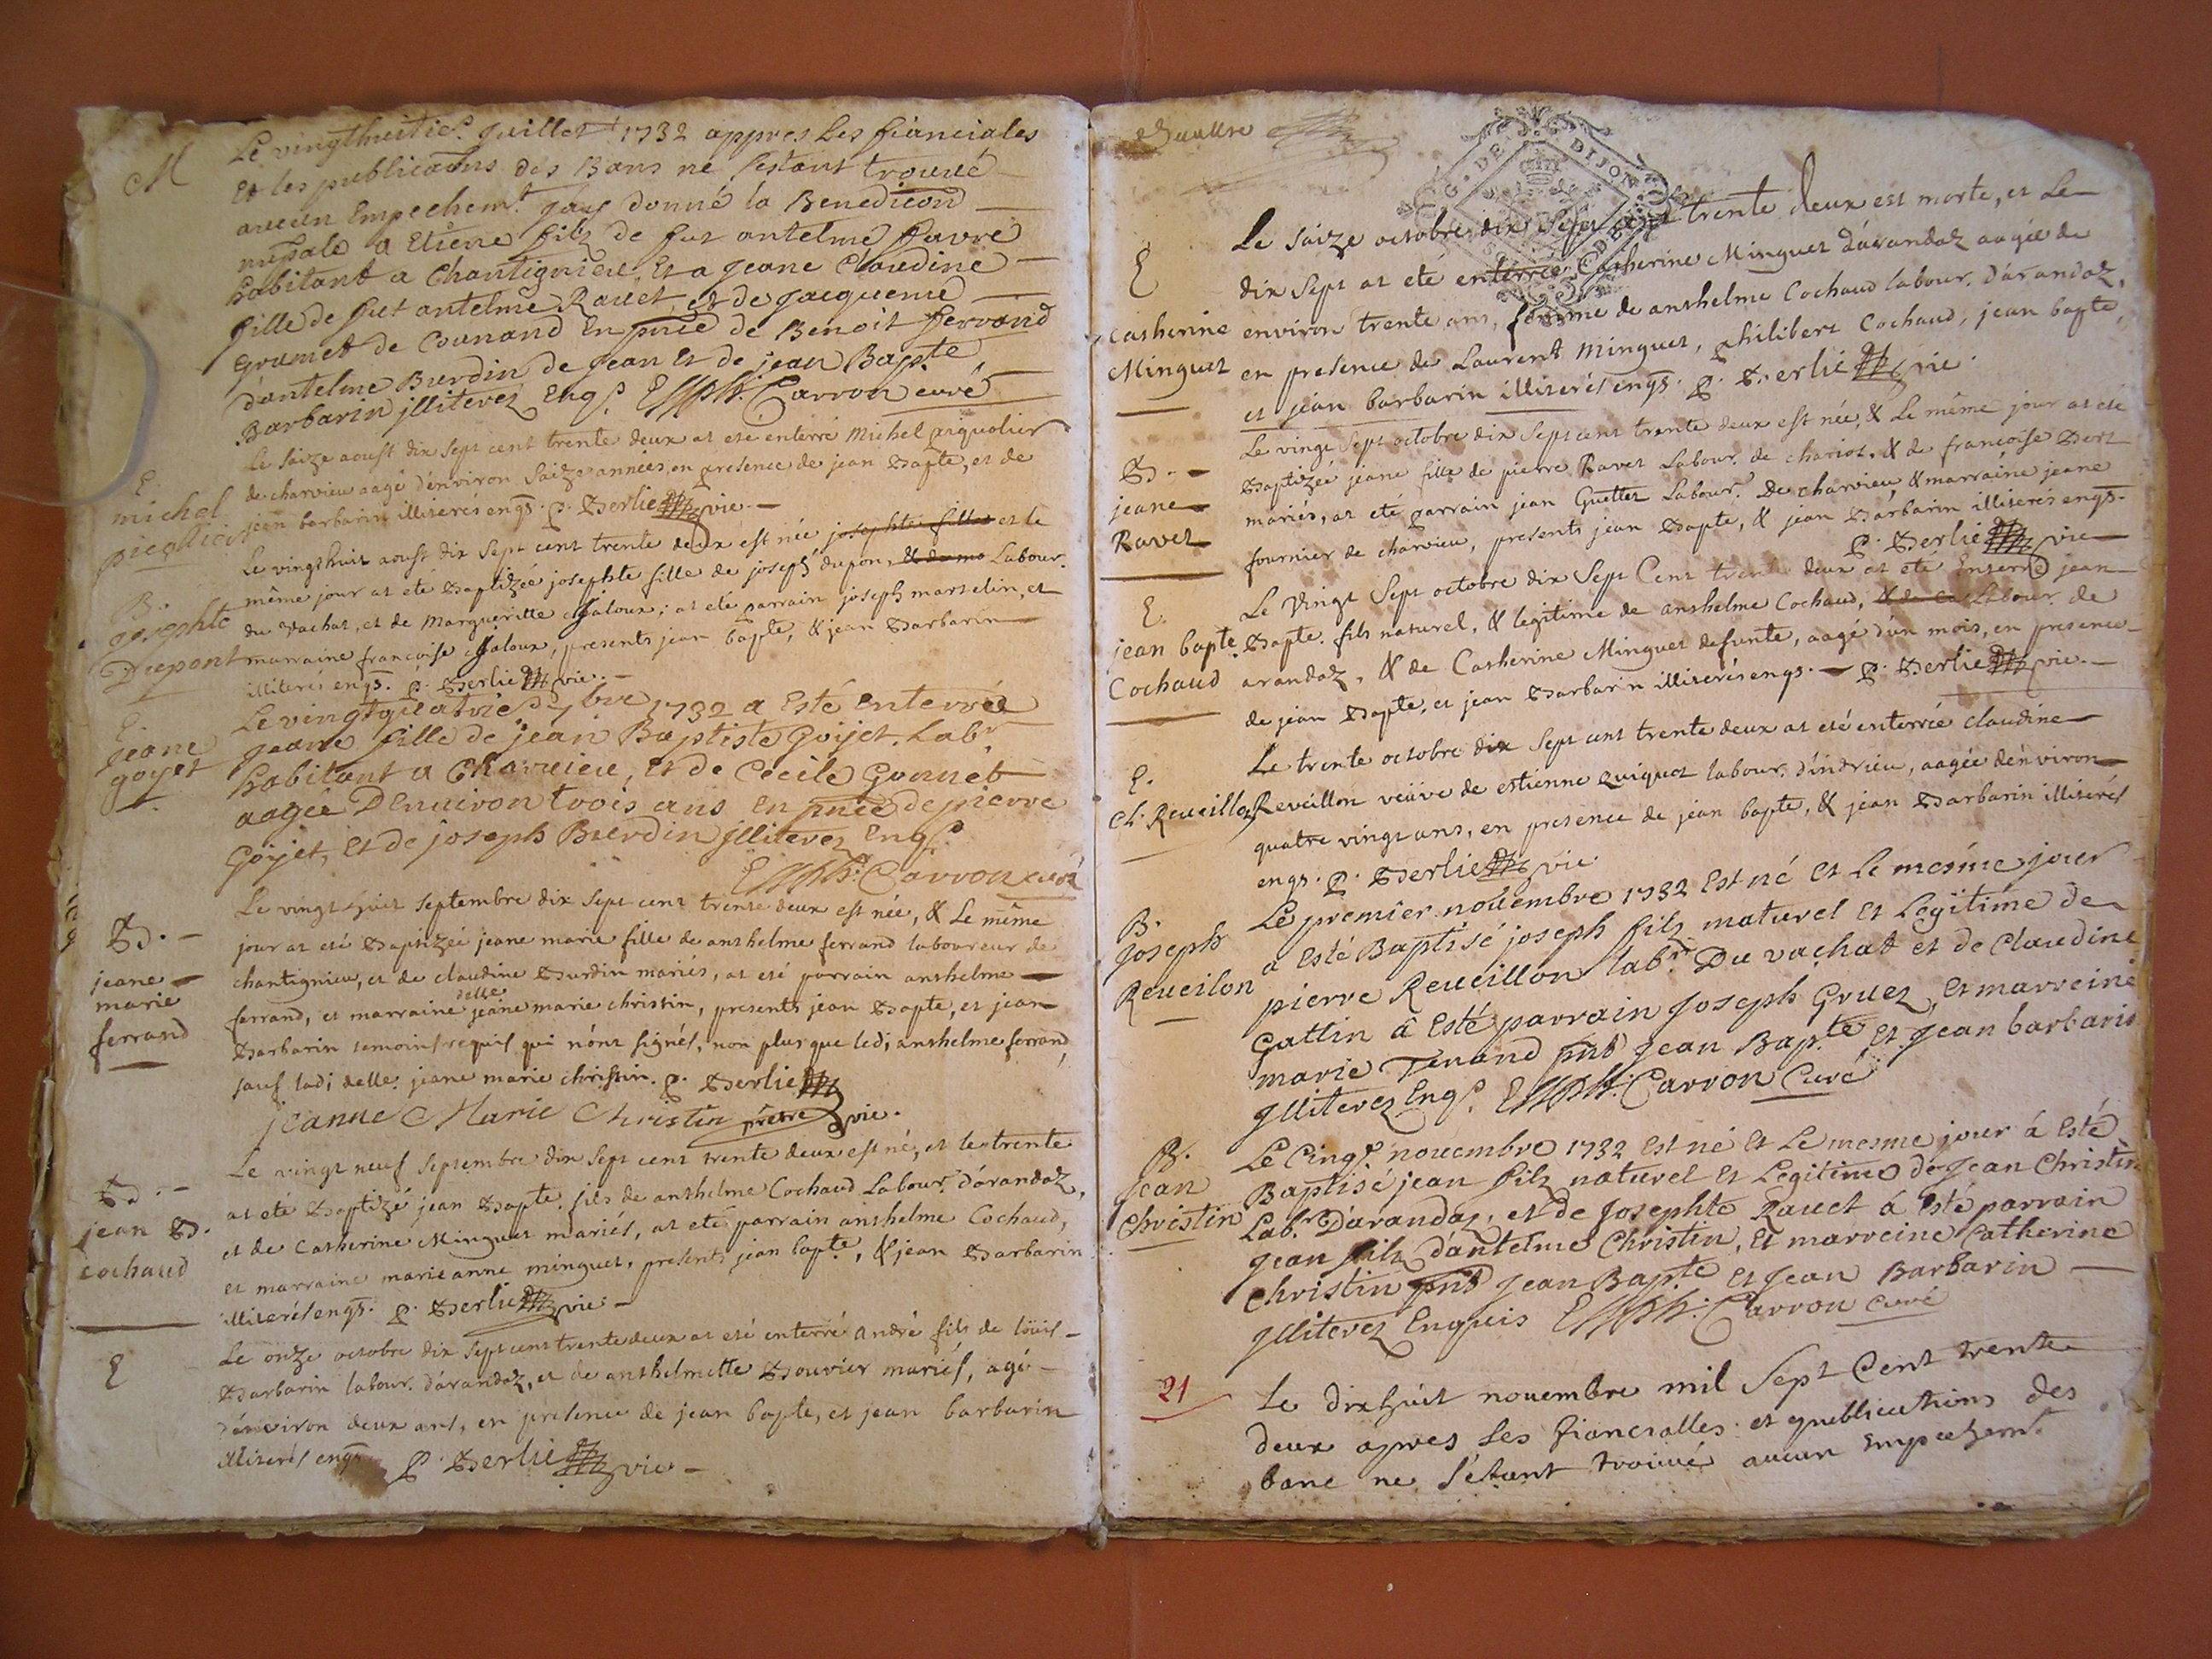 M
Le vingthuitie.e Juillet 1732 appres les fianciales
Et les publicaons des Bans ne sestant trouvé
aucun Empechem.t Jay donné la Benediçon
nupale a Etiene filz de fut antelme favre
habitant a Chantignieu, Et a Jeane Claudine
fille de fut antelme Ravet, et de Jacqueme
Grumet de Counand En pnce de Benoit ferrand
d'antelme Burdin de Jean Et de jean Bapte
Barbarin jlliterez Enq.s Carron curé
E.
michel
piqollier
Le saize aoust dix sept cent trente deux at ete enterré Michel piquolier
de charvieu aagé d'environ saize années, en presence de jean Bapte, et de
jean barbarin illiterés enqs. P. Berlie vic.
B.
Josephte
Dupont
Le vingthuit aoust dix sept cent trente deux est née josephte fille et le
même jour at eté Baptizée josephte fille de joseph dupon, & de ma Labour.
du vachat, et de Margueritte Jaloux; at eté parrain joseph marselin, et
marraine francoise Jaloux, presents jean bapte, & jean Barbarin
illiterés enqs. P. Berlie vic.
E.
jeane
goyet
Le vingtquatrie.e 7bre 1732 a Esté enterrée
Jeane fille de jean Baptiste Goijet, Labr
habitant a Charvieu, Et de Cecile Gonnet
aagée D'Environ trois ans En pnce de pierre
Goijet, Et de joseph Burdin jlliterez Enq.s
Carron curé
B.
jeane
marie
ferrand
Le vingt huit septembre dix sept cent trente deux est née, & Le même
jour at eté Baptizée jeane marie fille de anthelme ferrand laboureur de
chantignieu, et de claudine Burdin mariés, at eté parrain anthelme
ferrand, et marraine delle jeane marie christin, presents jean Bapte, et jean
Barbarin temoins requis qui n'ont signés, non plus que ledi anthelme ferrand,
sauf ladi delle. jeane marie christin. P. Berlie
jeanne Marie Christin prêtre vic.
B.
jean B.
cochaud
Le vingt neuf septembre dix sept cent trente deux est né, et le trente
at eté Baptizé jean Bapte. fils de anthelme Cochaud Labour. d'arandaz,
et de Catherine Minguet mariés, at eté parrain anthelme Cochaud,
et marraine marieanne minguet, presents jean bapte, & jean Barbarin
illiterés enqs. P. Berlie vic.
E
Le onze octobre dix sept cent trente deux at eté enterré andré fils de loüis
Barbarin labour. d'arandaz, et de anthelmette Bouvier mariés, agé
d'environ deux ans, en presence de jean bapte, et jean barbarin
illiterés enqs P. Berlie vic.
G. DE DIJON
E
Catherine
Minguet
Le saize octobre dix sept cent trente deux est morte, et Le
dix sept at eté enterrée Catherine Minguet d'arandaz aagée de
environ trente ans, femme de anthelme Cochaud labour. d'arandaz,
en presence de Laurent Minguet, philibert Cochaud, jean bapte,
et jean barbarin illiterés enqs. P. Berlie vic.
B.
jeane
Ravet
Le vingt sept octobre dix sept cent trente deux est née, & Le même jour at eté
Baptizée jeane fille de pierre Ravet Labour. de chariot, & de francoise Bert
mariés, at eté parrain jean Guettet Labour. De charvieu & marraine jeane
fournier de charvieu, presents jean Bapte, & jean Barbarin illiterés enqs.
P. Berlie vic
E.
jean bapte.
Cochaud
Le Vingt Sept octobre dix Sept Cent trente deux at eté Enterré jean
Bapte. fils naturel, & legitime de anthelme Cochaud, Labour. de
arandaz, & de Catherine Minguet defunte, aagé d'un mois, en presence
de jean Bapte, et jean Barbarin illiterés enqs. P. Berlie vic.
E.
Cl. Reveillon
Le trente octobre dix sept cent trente deux at eté enterrée claudine
Reveillon veüve de estienne quiquet labour. d'indrieu, aagée d'environ
quatre vingt ans, en presence de jean bapte, & jean Barbarin illiterés
enqs. P. Berlie vic
B.
Joseph
Reveilon
Le premier novembre 1732 Est né Et Le mesme jour
a Esté Baptisé joseph filz naturel Et Legitime de
pierre Reveillon labr. Du vachat et de Claudine
Gattin â Esté parrain Joseph Gruez, Et marreine
marie Tenand pnts Jean Bap.te, Et Jean barbarin
Jlliterez Enq.s Carron Curé
B.
Jean
Christin
Le Cinq.e novembre 1732 Est né Et Le mesme jour â Esté
Baptisé jean filz naturel Et Legitime de Jean Christin
Lab.r D'arandaz, et de Josephte Ravet â Esté parrain
Jean filz d'antelme Christin, Et marreine Catherine
Christin pnts Jean Bapte Et Jean Barbarin
Jlliterez Enquis Carron curé
21
Le dixhuit novembre mil Sept Cent trente
deux apres les fiancialles et publications des
banc ne s'étant trouvé aucun Empechemt